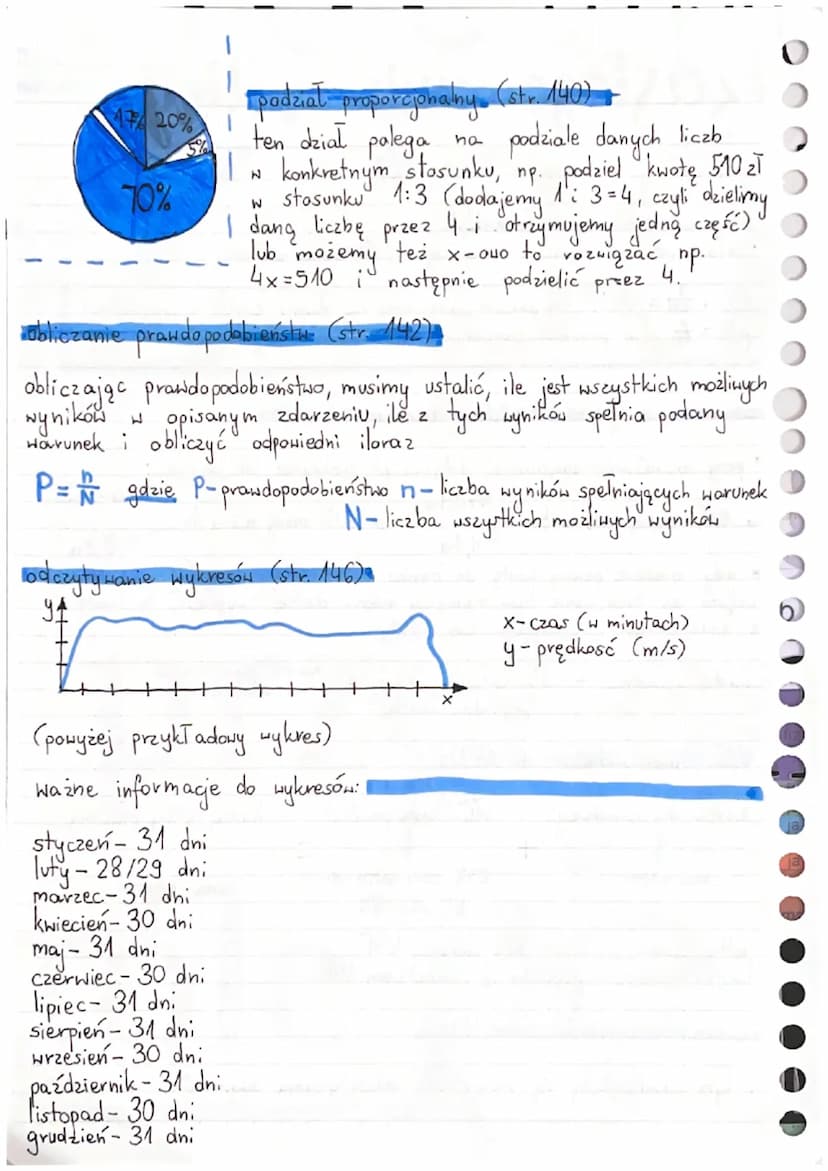 17% 20%
5%
70%
podział proporcjonalny (str. 140)
ten dział polega na podziale danych liczb
w konkretnym stosunku, np. podziel kwotę 510 zł
w stosunku 1:3 (dodajemy 1 i 3=4, czyli dzielimy
daną liczbę przez 4 i otrzymujemy jedną część)
lub możemy też x-owo to rozwiązać np.
4x=510 i następnie podzielić przez 4.
obliczanie prawdopodobieństw (str. 142)
obliczając prawdopodobieństwo, musimy ustalić, ile jest wszystkich możliwych
wyników w opisanym zdarzeniu, ile z tych wyników spełnia podany
warunek i obliczyć odpowiedni iloraz
P=n/N gdzie P-prawdopodobieństwo n-liczba wyników spełniających warunek
N-liczba wszystkich możliwych wyników
odczytywanie wykresów (str. 146)
y
x-czas (w minutach)
y-prędkość (m/s)
x
(powyżej przykładowy wykres)
ważne informacje do wykresów:
styczeń- 31 dni
luty- 28/29 dni
marzec- 31 dni
kwiecień- 30 dni
maj- 31 dni
czerwiec- 30 dni
lipiec- 31 dni
sierpień- 31 dni
wrzesień- 30 dni
październik- 31 dni
listopad- 30 dni
grudzień- 31 dni